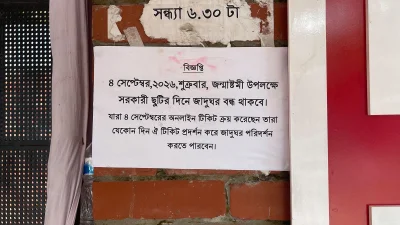 সন্ধ্যা ৬.৩০ টা
বিজ্ঞপ্তি
৪ সেপ্টেম্বর,২০২৬,শুক্রবার, জন্মাষ্টমী উপলক্ষে
সরকারী ছুটির দিনে জাদুঘর বন্ধ থাকবে।
যারা ৪ সেপ্টেম্বরের অনলাইন টিকিট ক্রয় করেছেন তারা
যেকোন দিন ঐ টিকিট প্রদর্শন করে জাদুঘর পরিদর্শন
করতে পারবেন।